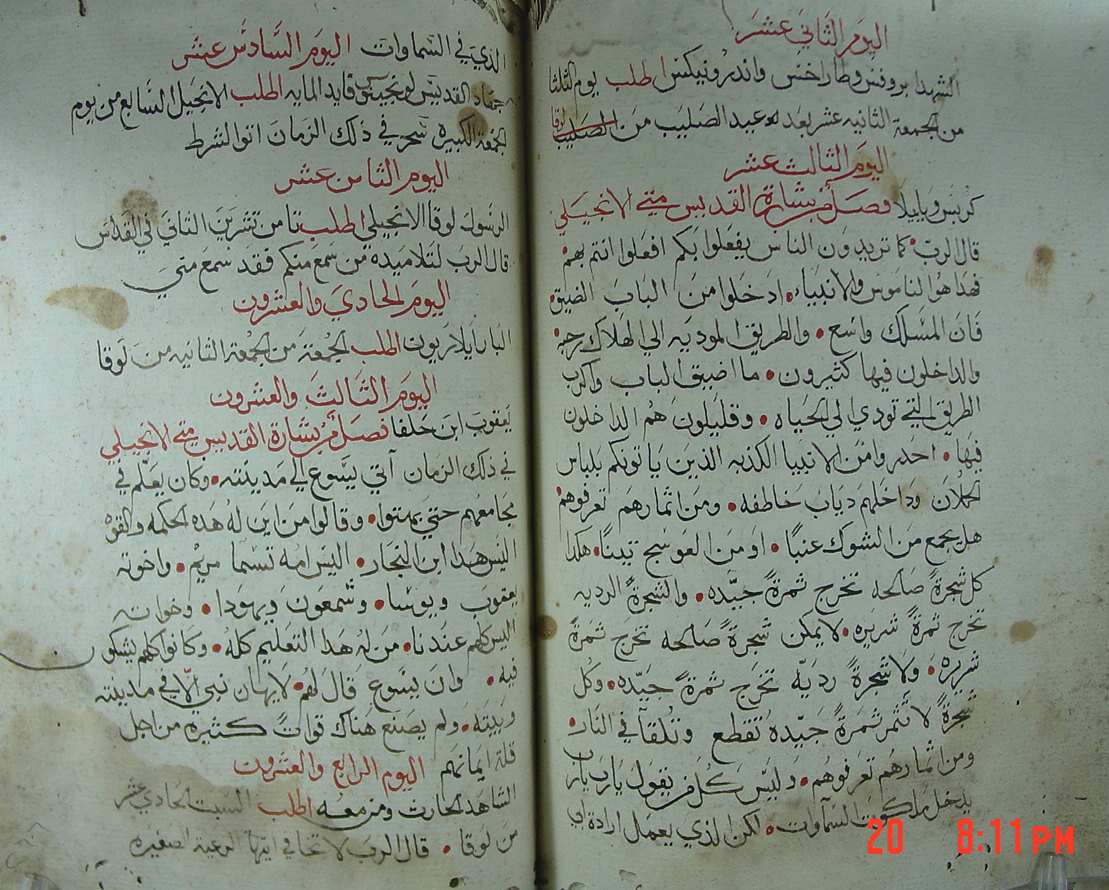 اليوم الثاني عشر
الشهدا بروفس وطاراخس واندرونيكس اطلب يوم الثلثا
من الجمعة الثانيه عشر بعد عيد الصليب من لوقا
اليوم الثالث عشر
فصل من بشارة القديس متي الانجيلي
قال الرب • كما تريدون الناس يفعلوا بكم افعلوا انتم بهم •
فهذا هو الناموس والانبياء • ادخلوا من الباب الضيق •
فان المسلك واسع • والطريق الموديه الي الهلاك رحبه
والداخلون فيها كثيرون • ما اضيق الباب واكرب
الطريق التي تودي الي الحياه • وقليلون هم الداخلون
فيها • احدروا من الانبيا الكذبه الذين ياتونكم بلباس
الحملان وداخلهم دياب خاطفه • ومن اثمارهم تعرفوهم
هل يجمع من الشوك عنبا • او من العوسج تينا • هكدا
كل شجرة صالحه تخرج ثمرة جيده • والشجرة الرديه
تخرج ثمرة شريره • لا يمكن شجرة صالحه تخرج ثمرة
شريره • ولا شجرة رديه تخرج ثمرة جيده • وكل
شجرة لا تثمر ثمرة جيده تقطع وتلقا في النار •
ومن اثمارهم تعرفوهم • وليس كل من يقول يارب يارب
يدخل ملكوت السماوات • لكن الذي يعمل ارادة ابي
20 8:11PM
الذي في السماوات اليوم السادس عشر
القديس لونجينس قايد المايه اطلب الانجيل السابع من يوم
الجمعة الكبيره سحر في ذلك الزمان اتوا الشرط
اليوم الثامن عشر
الرسول لوقا الانجيلي اطلب تامن تشرين الثاني في القداس
قال الرب لتلاميده من سمع منكم فقد سمع مني
اليوم الحادي والعشرون
البار ايلاريون اطلب الجمعة من الجمعة الثانيه من لوقا
اليوم الثالث والعشرون
يعقوب ابن حلفا فصل من بشارة القديس متي الانجيلي
في ذلك الزمان اتي يسوع الي مدينته • وكان يعلم في
مجامعهم حتي يبهتوا • وقالوا من اين له هده الحكمه والقوه
اليس هدا ابن النجار • اليس امه تسما مريم • واخوته
يعقوب ويوسا • وشمعون ويهودا • وخواته
اليس كلهم عندنا • من له هدا التعليم كله • وكانوا كلهم يشكون
فيه • وان يسوع قال لهم • لا يهان نبي الا في مدينته
وبيته • ولم يصنع هناك قوات كثيره من اجل
قلة ايمانهم اليوم الرابع والعشرون
الشاهد الحارث ومن معه اطلب السبت الحادي عشر
من لوقا • قال الرب لا تخافي ايتها الرعية الصغيره